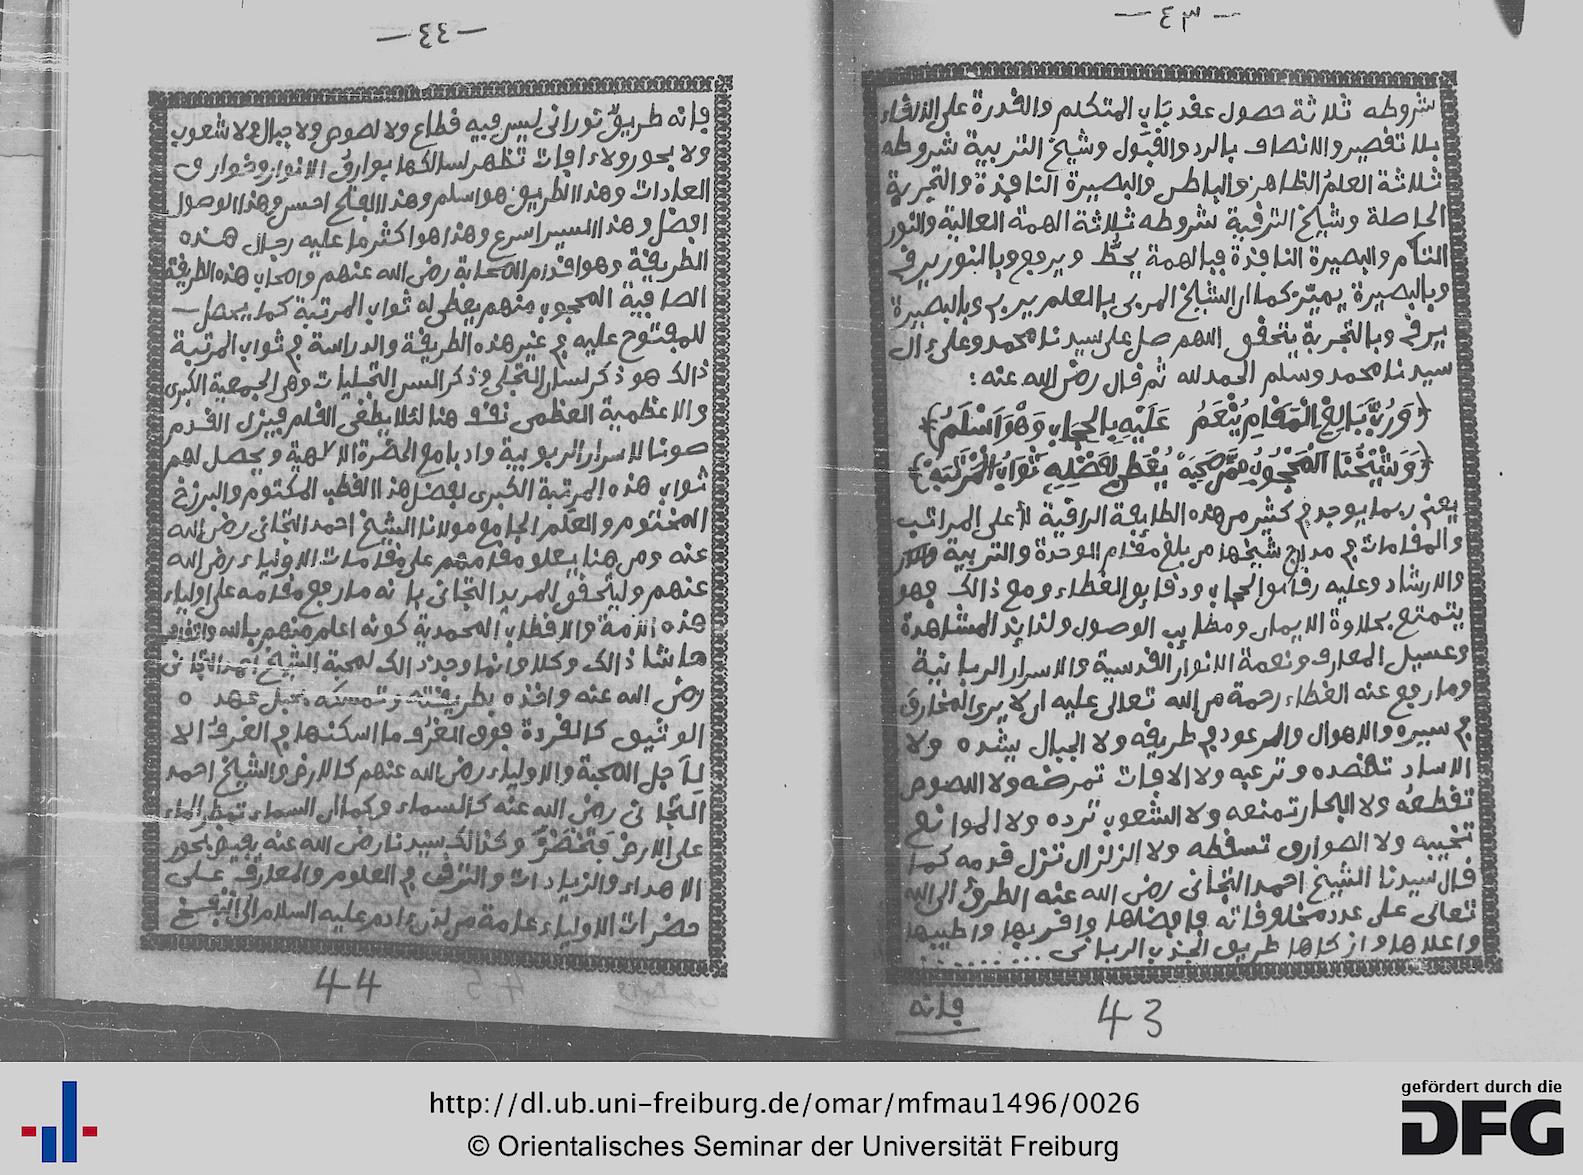 — ٤٣ —
شروطه ثلاثة حصول عقد باب المتكلم والقدرة على الالقاء
بلا تقصير والانصاف بالرد والقبول وشيخ التربية شروطه
ثلاثة العلم الظاهر والباطن والبصيرة النافذة والتجربة
الحاصلة وشيخ الترقية شروطه ثلاثة الهمة العالية والنور
التام والبصيرة النافذة فبالهمة يحط ويرفع وبالنور يرقي
وبالبصيرة يميز كما ان الشيخ المربي بالعلم يربي وبالبصيرة
يرقي وبالتجربة يتحقق اللهم صل على سيدنا محمد وعلى ءال
سيدنا محمد وسلم الحمد لله ثم قال رضي الله عنه :
﴿وَرُبَّ بَالِغِ الْمَقَامِ يُنْعَمُ عَلَيْهِ بِالْحِجَابِ وَهْوَ اَسْلَمُ﴾
﴿وَشَيْخُنَا الْمَحْجُوبُ مِمَّنْ صَحِبَهْ يُعْطَى بِفَضْلِهِ ثَوَابُ الْمَرْتَبَهْ﴾
يعني ربما يوجد في كثير من هذه الطايفة الراقية لأعلى المراتب
والمقامات في مدارج شيخها من بلغ مقام الوحدة والتربية
والارشاد وعليه رقايق الحجاب ودقايق الغطاء ومع ذالك فهو
يتمتع بحلاوة الايمان ومطايب الوصول ولذايذ المشاهدة
وعسيل المعارف ونعمة الانوار القدسية والاسرار الربانية
وما رفع عنه الغطاء رحمة من الله تعالى عليه ان لا يرى المخارق
في سيره والاهوال والرعود في طريقه ولا الجبال بيشده ولا
الاساد تقصده وترعبه ولا الافات تمرضه ولا اللصوص
تقطعه ولا البحار تمنعه ولا الشعوب ترده ولا الموانع
تخيبه ولا الصوارف تسقطه ولا الزلزال تزل قدمه كما
قال سيدنا الشيخ احمد التجاني رضي الله عنه الطرق الى الله
تعالى على عدد مخلوقاته فافضلها واقربها واطيبها
واعلاها وازكاها طريق الجذب الرباني . . . . . . . . .
فإنه
43
— ٤٤ —
فإنه طريق نوراني ليس فيه قطاع ولا لصوص ولا جبال ولا شعوب
ولا بحور ولا ءافات تظهر لسالكها بوارق الانوار وخوارق
العادات وهذا الطريق هو اسلم وهذا الفتح احسن وهذا الوصول
افضل وهذا السير اسرع وهذا هو اكثر ما عليه رجال هذه
الطريقة وهو اقدام الصحابة رضي الله عنهم واصحاب هذه الطريقة
الصافية المحجوب منهم يعطى له ثواب المرتبة كما يحصل —
للمفتوح عليه في غير هذه الطريقة والدراسة في ثواب المرتبة
ذالك هو ذكر لسان التجلي وذكر السر التجليات وهي الجمعية الكبرى
والاعظمية العظمى نقف هنا لئلا يطغى القلم فيزل القدم
صونا للاسرار الربوبية وادبا مع الحضرة الالهية ويحصل لهم
ثواب هذه المرتبة الكبرى بفضل هذا القطب المكتوم والبرزخ
المختوم والعلم الجامع مولانا الشيخ احمد التجاني رضي الله
عنه ومن هنا يعلو مقامهم على مقامات الاولياء رضي الله
عنهم وليتحقق المريد التجاني بانه ما رفع مقامه على اولياء
هذه الأمة والاقطاب المحمدية كونه اعلم منهم بالله
حاشا ذالك وكلا وانما وجد ذالك لمحبة الشيخ احمد التجاني
رضي الله عنه واخذه بطريقته وتمسكه بحبل عهده
الوثيق كالقردة فوق الغرف ما اسكنها في الغرف الا
لأجل المحبة والاولياء رضي الله عنهم كالارض والشيخ احمد
التجاني رضي الله عنه كالسماء وكما ان السماء تمطر الماء
على الارض فتخضر وكذالك سيدنا رضي الله عنه يفيض بحور
الامداد والزيادات والترقي في العلوم والمعارف على
حضرات الاولياء عامة من لدن ءادم عليه السلام الى النفخ
44
http://dl.ub.uni-freiburg.de/omar/mfmau1496/0026
© Orientalisches Seminar der Universität Freiburg
gefördert durch die
DFG